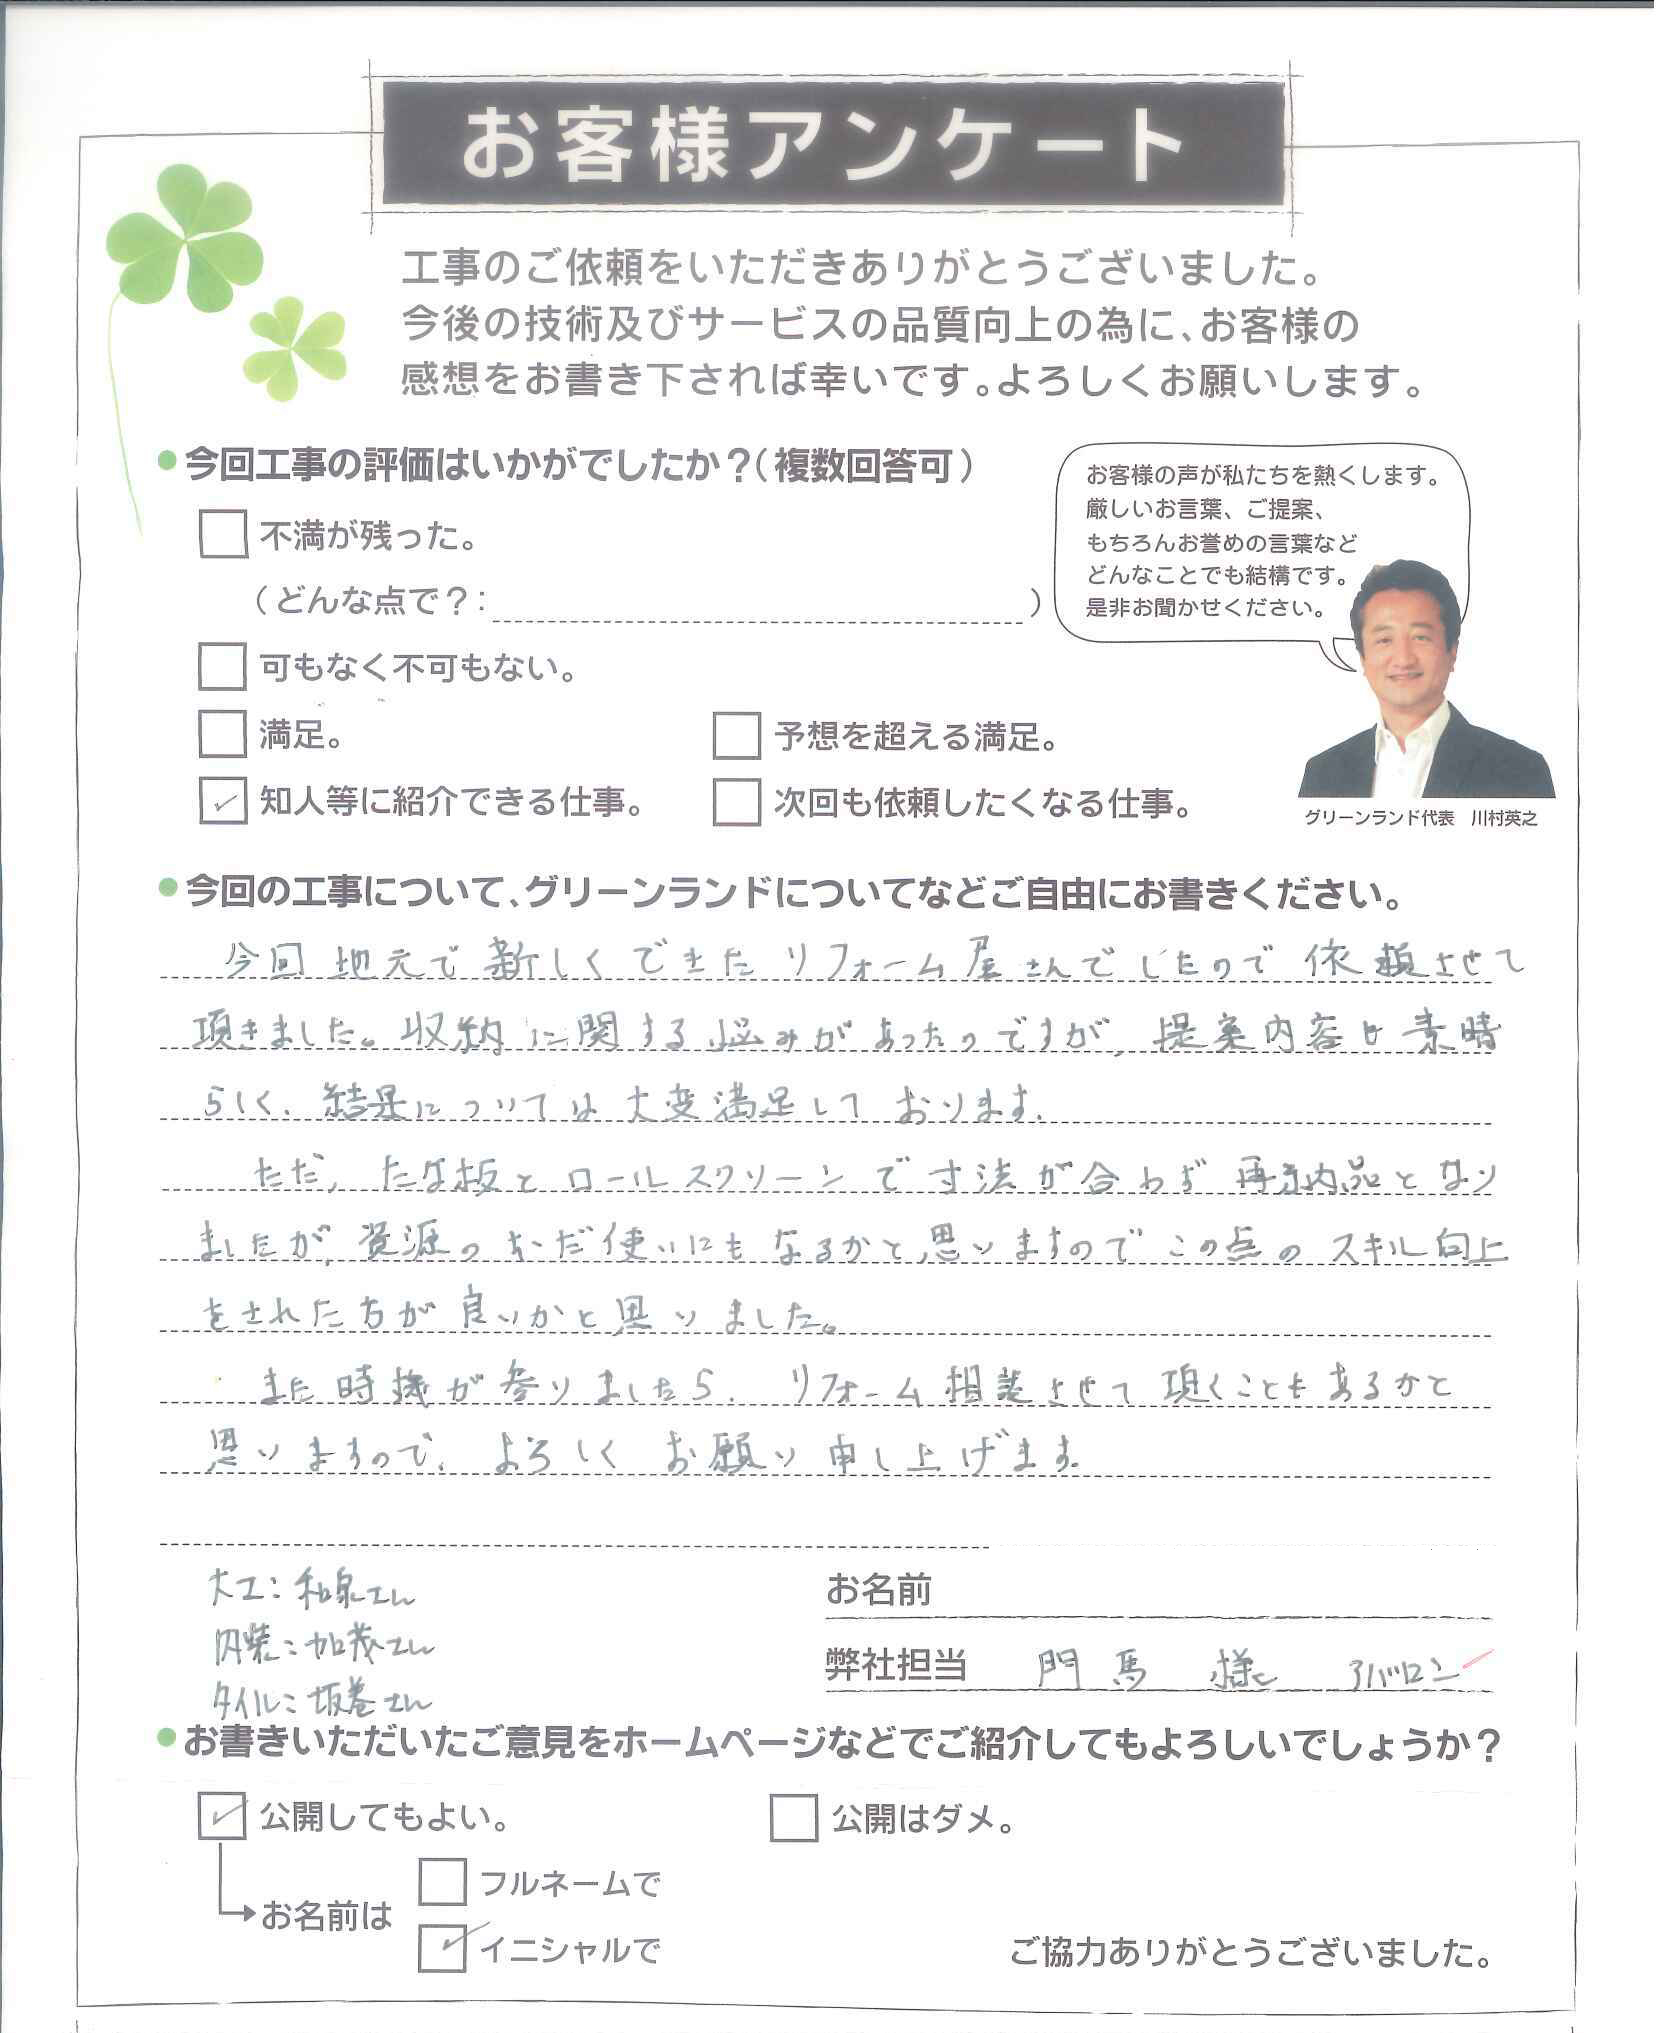 お客様アンケート
工事のご依頼をいただきありがとうございました。
今後の技術及びサービスの品質向上の為に、お客様の
感想をお書き下されば幸いです。よろしくお願いします。
今回工事の評価はいかがでしたか？（複数回答可）
不満が残った。
（どんな点で？：　）
可もなく不可もない。
満足。
予想を超える満足。
知人等に紹介できる仕事。
次回も依頼したくなる仕事。
お客様の声が私たちを熱くします。
厳しいお言葉、ご提案、
もちろんお誉めの言葉など
どんなことでも結構です。
是非お聞かせください。
グリーンランド代表　川村英之
今回の工事について、グリーンランドについてなどご自由にお書きください。
今回 地元で 新しく できた リフォーム屋さんでしたので 依頼させて
頂きました。収納に関する悩みがあったのですが、提案内容も素晴
らしく、結果については大変満足しております。
ただ、たな板とロールスクリーンで寸法が合わず再納品となり
ましたが、資源のむだ使いにもなるかと思いますのでこの点のスキル向上
をされた方が良いかと思いました。
また時機が参りましたら、リフォーム相談させて頂くこともあるかと
思いますので、よろしくお願い申し上げます。
大工：和泉さん
内装：加茂さん
タイル：坂巻さん
お名前
弊社担当　門馬　様　アバロン
お書きいただいたご意見をホームページなどでご紹介してもよろしいでしょうか？
公開してもよい。
公開はダメ。
お名前は
フルネームで
イニシャルで
ご協力ありがとうございました。